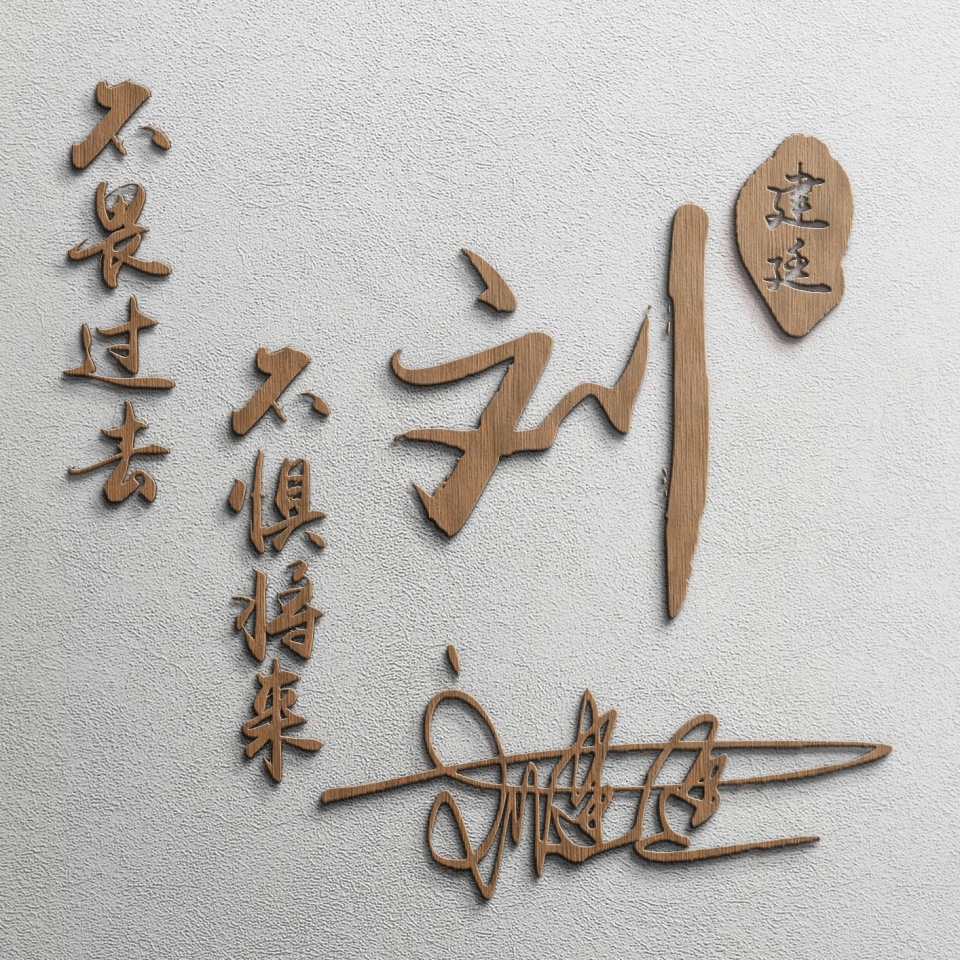 不畏过去
不惧将来
刘
建廷
刘建廷